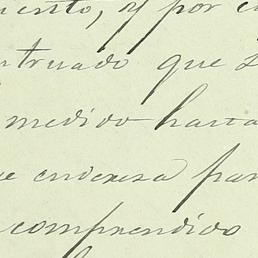 iento, y por e
ntruado que
medido hasta
e endereza par
comprendido